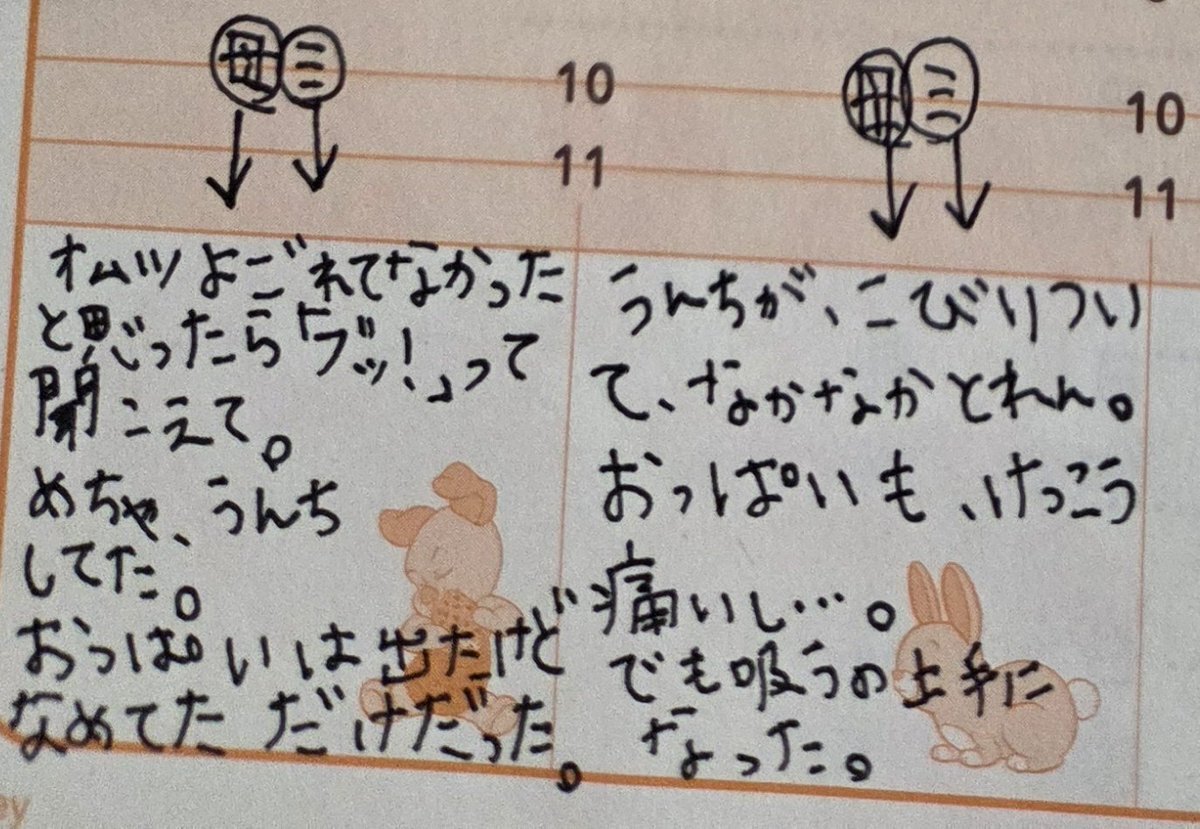 母 三
10
11
オムツよごれてなかった
と思ったら「ブッ!」って
聞こえて。
めちゃ、うんち
してた。
おっぱいは出たけど
なめてただけだった。
母 三
10
11
うんちが、こびりつい
て、なかなかとれん。
おっぱいも、けっこう
痛いし…。
でも吸うの上手に
なった。
ey